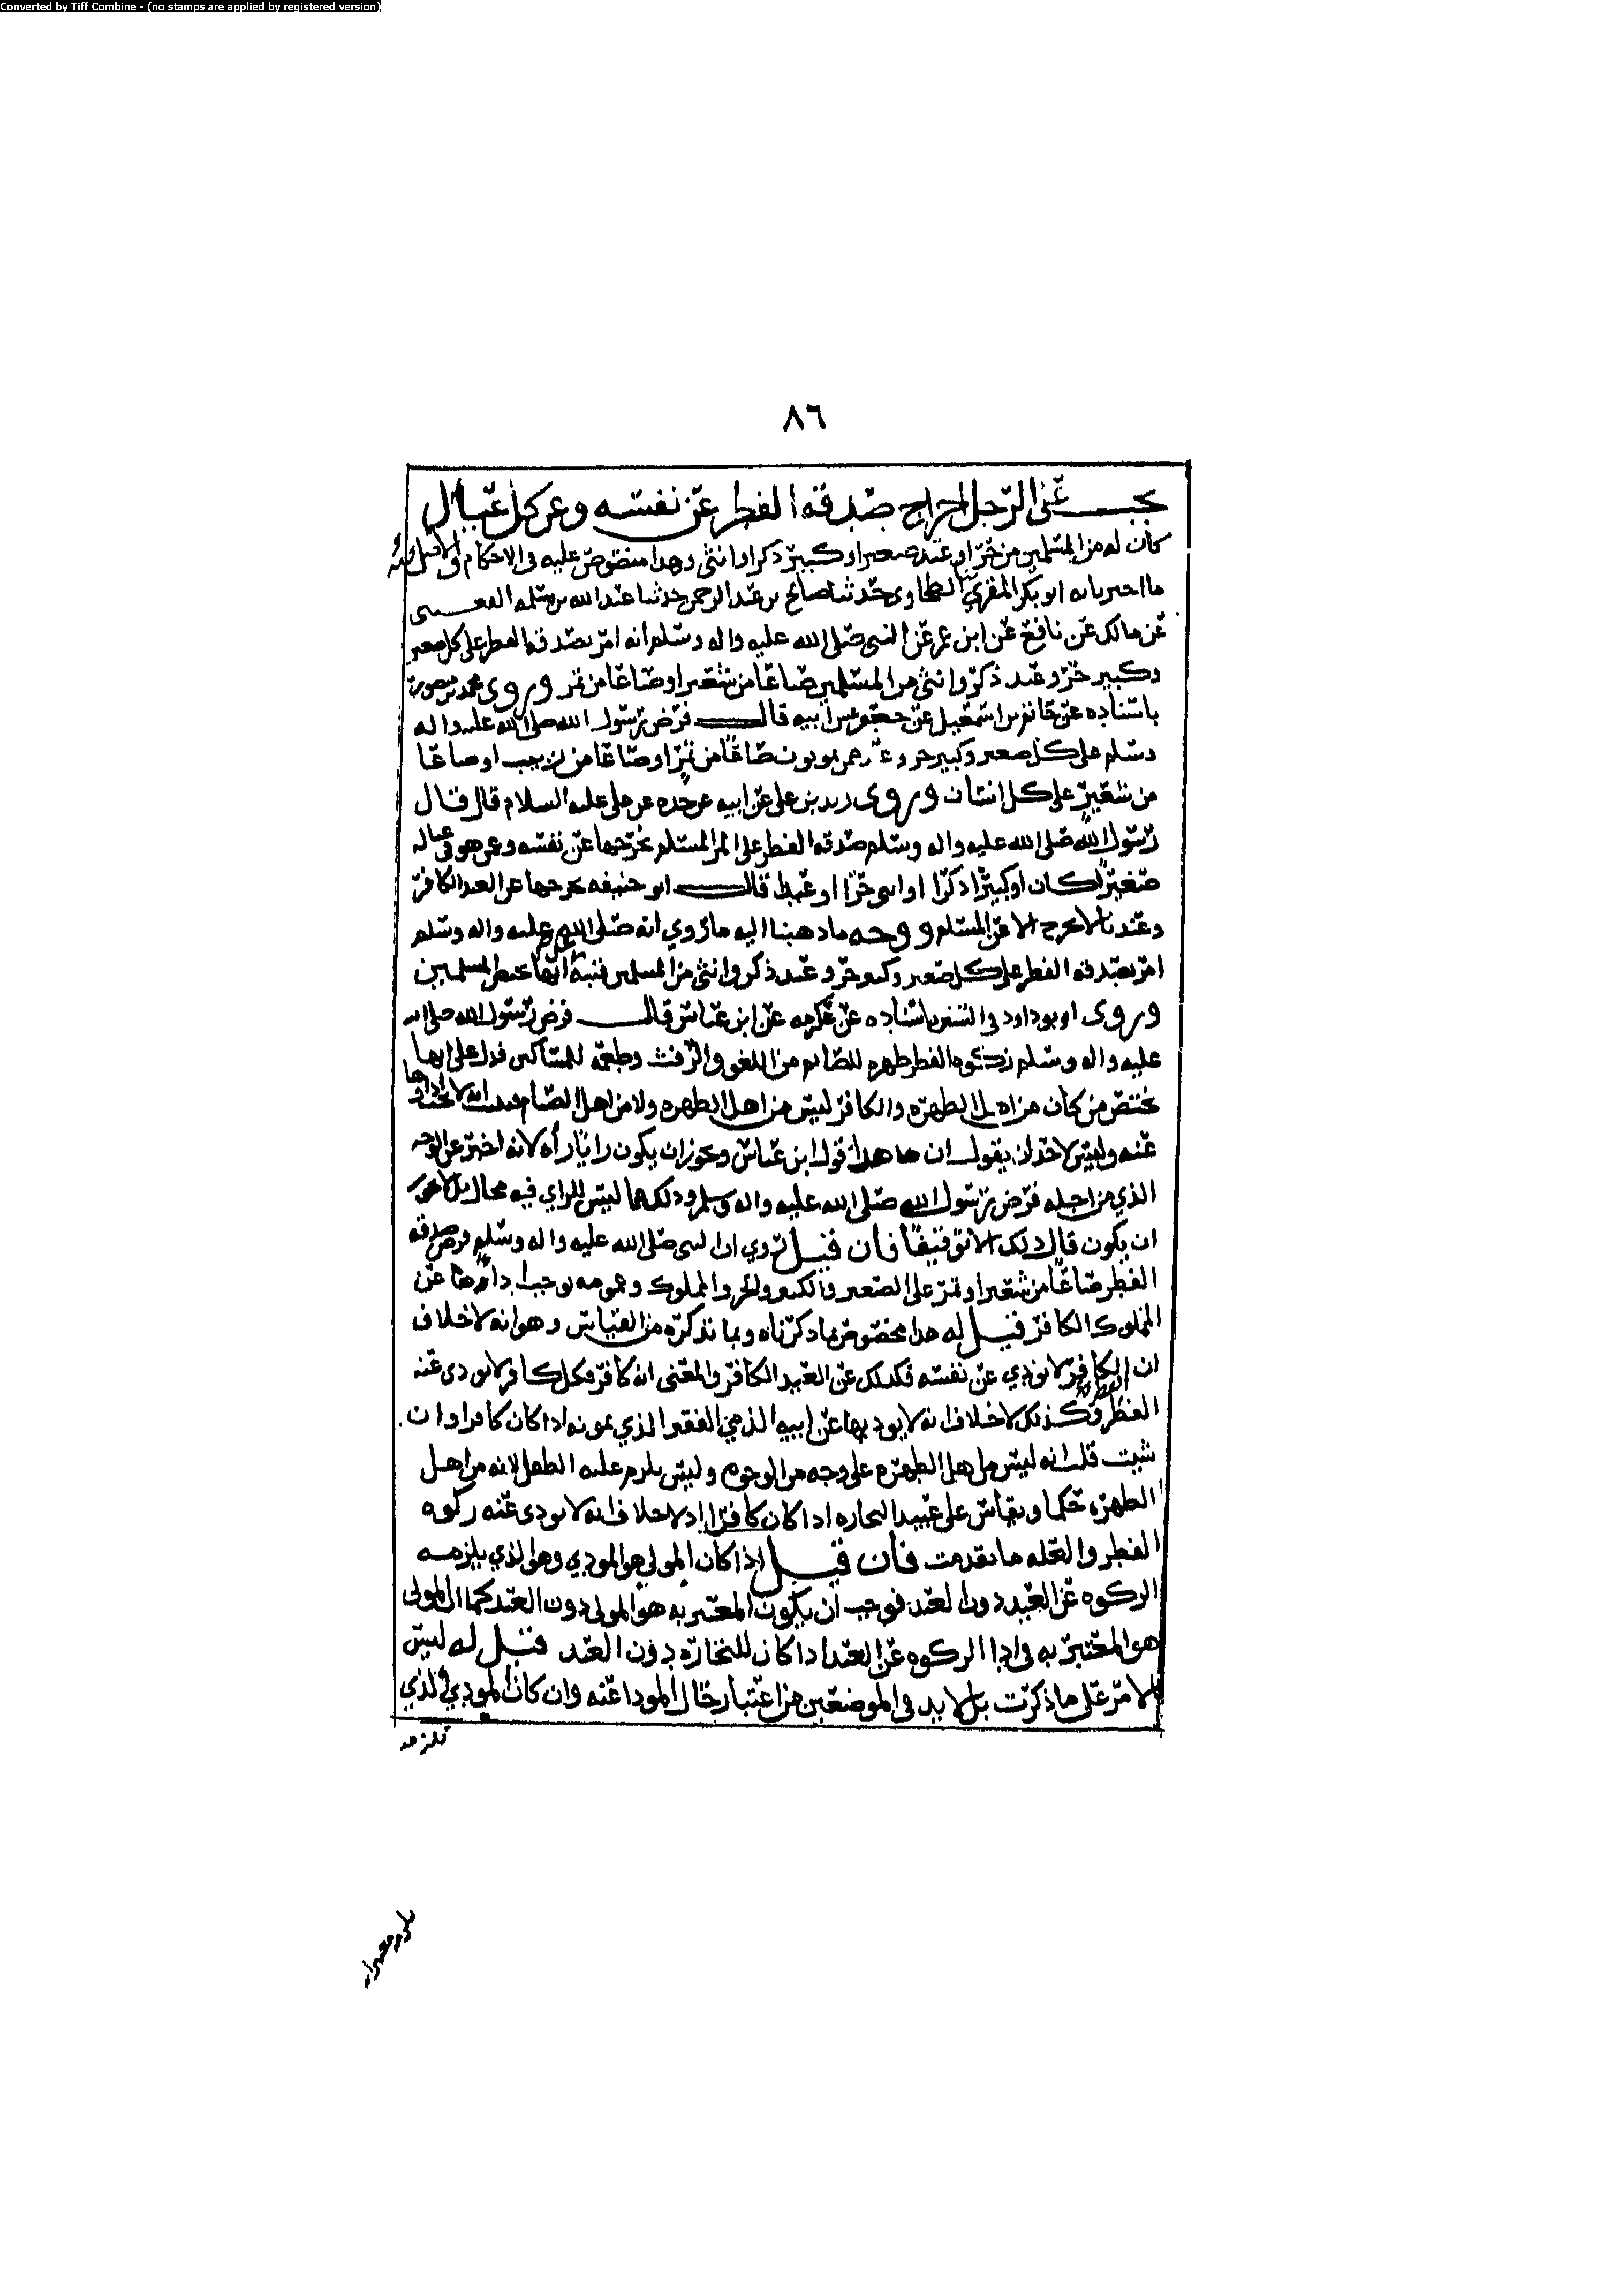 Converted by Tiff Combine - (no stamps are applied by registered version)
٨٦
يجب على الرجل اخراج صدقه الفطر عن نفسه وعن كل عيال
كان له من المسلمين من حر او عبد صغير او كبير ذكرا او انثى وهذا منصوص عليه في الاحكام والاصل فيه
ما اخبرنا به ابو بكر المقري الطحاوي حدثنا صالح بن عبد الرحمن حدثنا عبد الله بن مسلمه القعنبى
عن مالك عن نافع عن ابن عمر عن النبى صلى الله عليه واله وسلم انه امر بصدقه الفطر على كل صغير
وكبير حر وعبد ذكر وانثى من المسلمين صاعا من شعير او صاعا من تمر وروى محمد بن منصور
باسناده عن حاتم بن اسمعيل عن جعفر عن ابيه قال فرض رسول الله صلى الله عليه واله
وسلم على كل صغير وكبير حر وعبد ممن يمونون صاعا من تمر او صاعا من زبيب او صاعا
من شعير على كل انسان وروى زيد بن على عن ابيه عن جده عن على عليه السلام قال قال
رسول الله صلى الله عليه واله وسلم صدقه الفطر على المرء المسلم يخرجها عن نفسه وعن من هو في عياله
صغيرا كان او كبيرا ذكرا او انثى حرا او عبدا قال ابو حنيفه يخرجها عن العبد الكافر
وعندنا لا يخرج الا عن المسلم ووجه ما ذهبنا اليه ما روي انه صلى الله عليه واله وسلم
امر بصدقه الفطر على كل صغير وكبير حر وعبد ذكر وانثى من المسلمين فنبه انها تخص المسلمين
وروى ابو داود في السنن باسناده عن عكرمه عن ابن عباس قال فرض رسول الله صلى الله
عليه واله وسلم زكوه الفطر طهره للصائم من اللغو والرفث وطعمة للمساكين فدل على انها
تختص من كان من اهل الطهره والكافر ليس من اهل الطهره ولا من اهل الصيام فثبت انه لا يجب اداوها
عنه وليس لاحد ان يقول ان هذا قول ابن عباس ويجوز ان يكون رايا رأه لانه اخبر عن الوجه
الذي من اجله فرض رسول الله صلى الله عليه واله وسلم وذلك مما ليس للراي فيه مجال بل لا يجوز
ان يكون قال ذلك الا توقيفا فان قيل روي ان النبى صلى الله عليه واله وسلم فرض صدقه
الفطر صاعا من شعير او تمر على الصغير والكبير والحر والمملوك وعمومه يوجب اداءها عن
المملوك الكافر قيل له هذا مخصوص بما ذكرناه وبما نذكره من القياس وهو انه لا خلاف
ان الكافر لا يودي عن نفسه فكذلك عن العبد الكافر والمعنى انه كافر فكل كافر لا يودى عنه
الفطر وكذلك لا خلاف انه لا يوديها عن ابيه الذمي الفقير الذي يمونه اذا كان كافرا وان
شيت قلت انه ليس من اهل الطهره على وجه من الوجوه وليس يلزم عليه الطفل لانه من اهل
الطهره حكما ويقاس على عبيد التجاره اذا كان كافرا اذ لا خلاف انه لا يودى عنه زكوه
الفطر والعله ما تقدمت فان قيل اذا كان المولى هو المودي وهو الذي يلزمه
الزكوه عن العبد دون العبد فوجب ان يكون المعتبر به هو المولى دون العبد كما ان المولى
هو المعتبر به في اداء الزكوه عن العبد اذا كان للتجاره دون العبد قيل له ليس
الامر على ما ذكرت بل لا بد في الموضعين من اعتبار حال المودا عنه وان كان المودي الذي
تلزمه